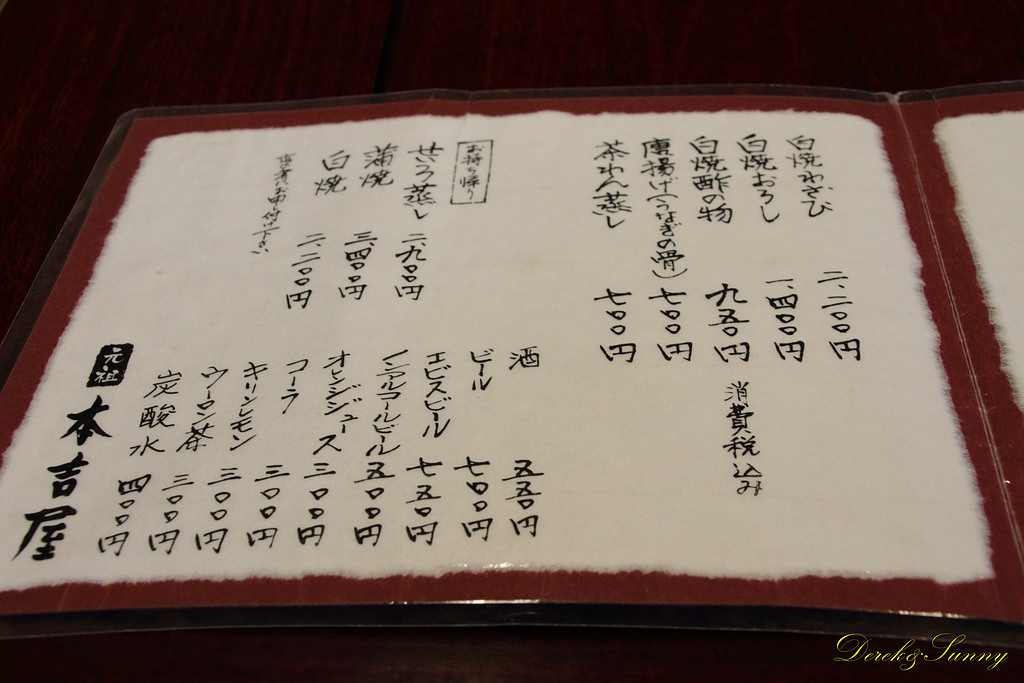 白焼わさび 二、二〇〇円
白焼おろし 一、四〇〇円
白焼酢の物 九五〇円
唐揚げ(うなぎの骨) 七〇〇円
茶わん蒸し 七〇〇円
消費税込み
お持ち帰り
せいろ蒸し 二、九〇〇円
蒲焼 三、四〇〇円
白焼 二、二〇〇円
店者にお申付け下さい
酒 五五〇円
ビール 七〇〇円
エビスビール 七五〇円
ノンアルコールビール 五〇〇円
オレンジジュース 三〇〇円
コーラ 三〇〇円
キリンレモン 三〇〇円
ウーロン茶 三〇〇円
炭酸水 四〇〇円
元祖
本吉屋
Derek&Sunny